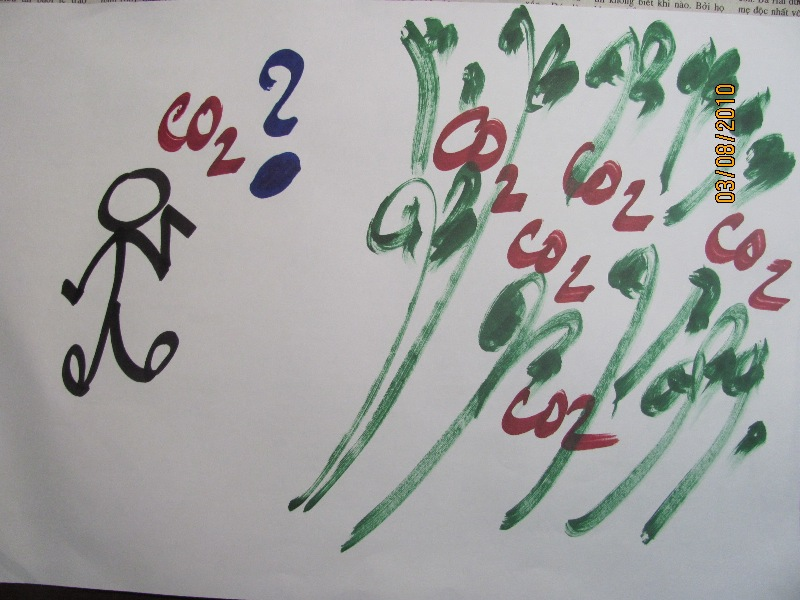 ên không biết khi nào. Bởi họ
mẹ độc nhất vô
CO2 ?
CO2
CO2
CO2
CO2
CO2
03/08/2010